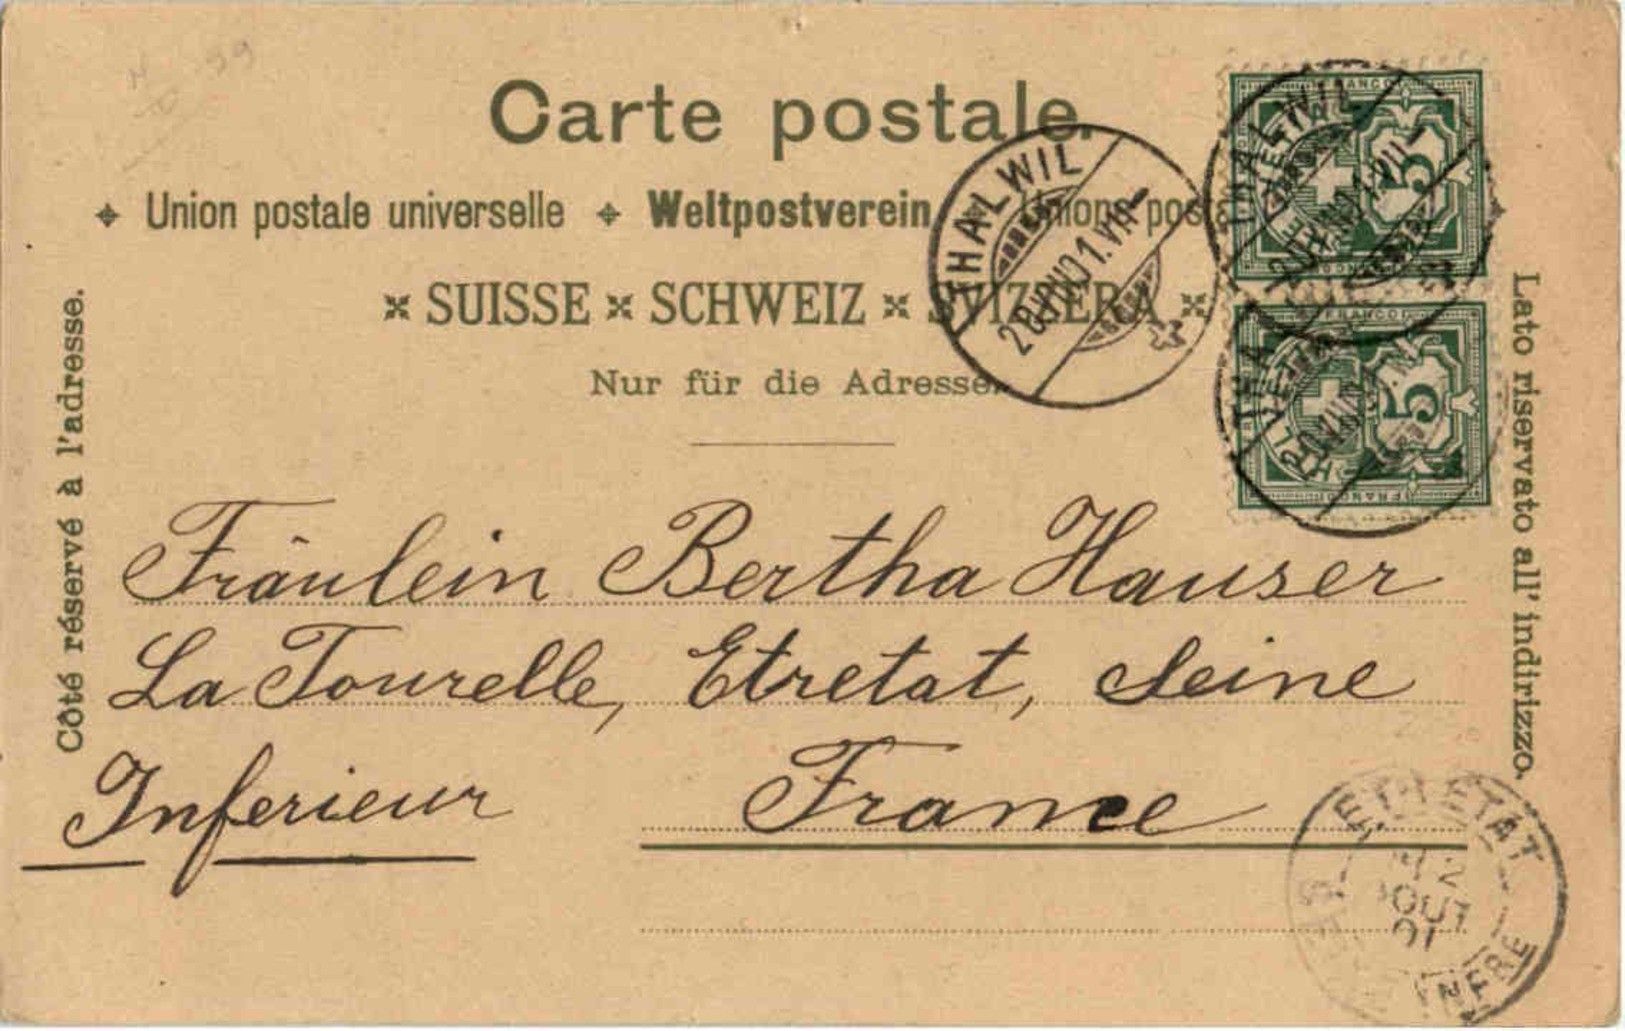 Carte postale.
Union postale universelle Weltpostverein
SUISSE SCHWEIZ SVIZZERA
Nur für die Adresse.
Côté réservé à l'adresse.
Lato riservato all' indirizzo.
THALWIL
THALWIL
FRANCO
5
FRANCO
5
Fräulein Bertha Hauser
La Tourelle, Etretat, Seine
Inferieur France
ETRETAT
AOUT
01
INFRE